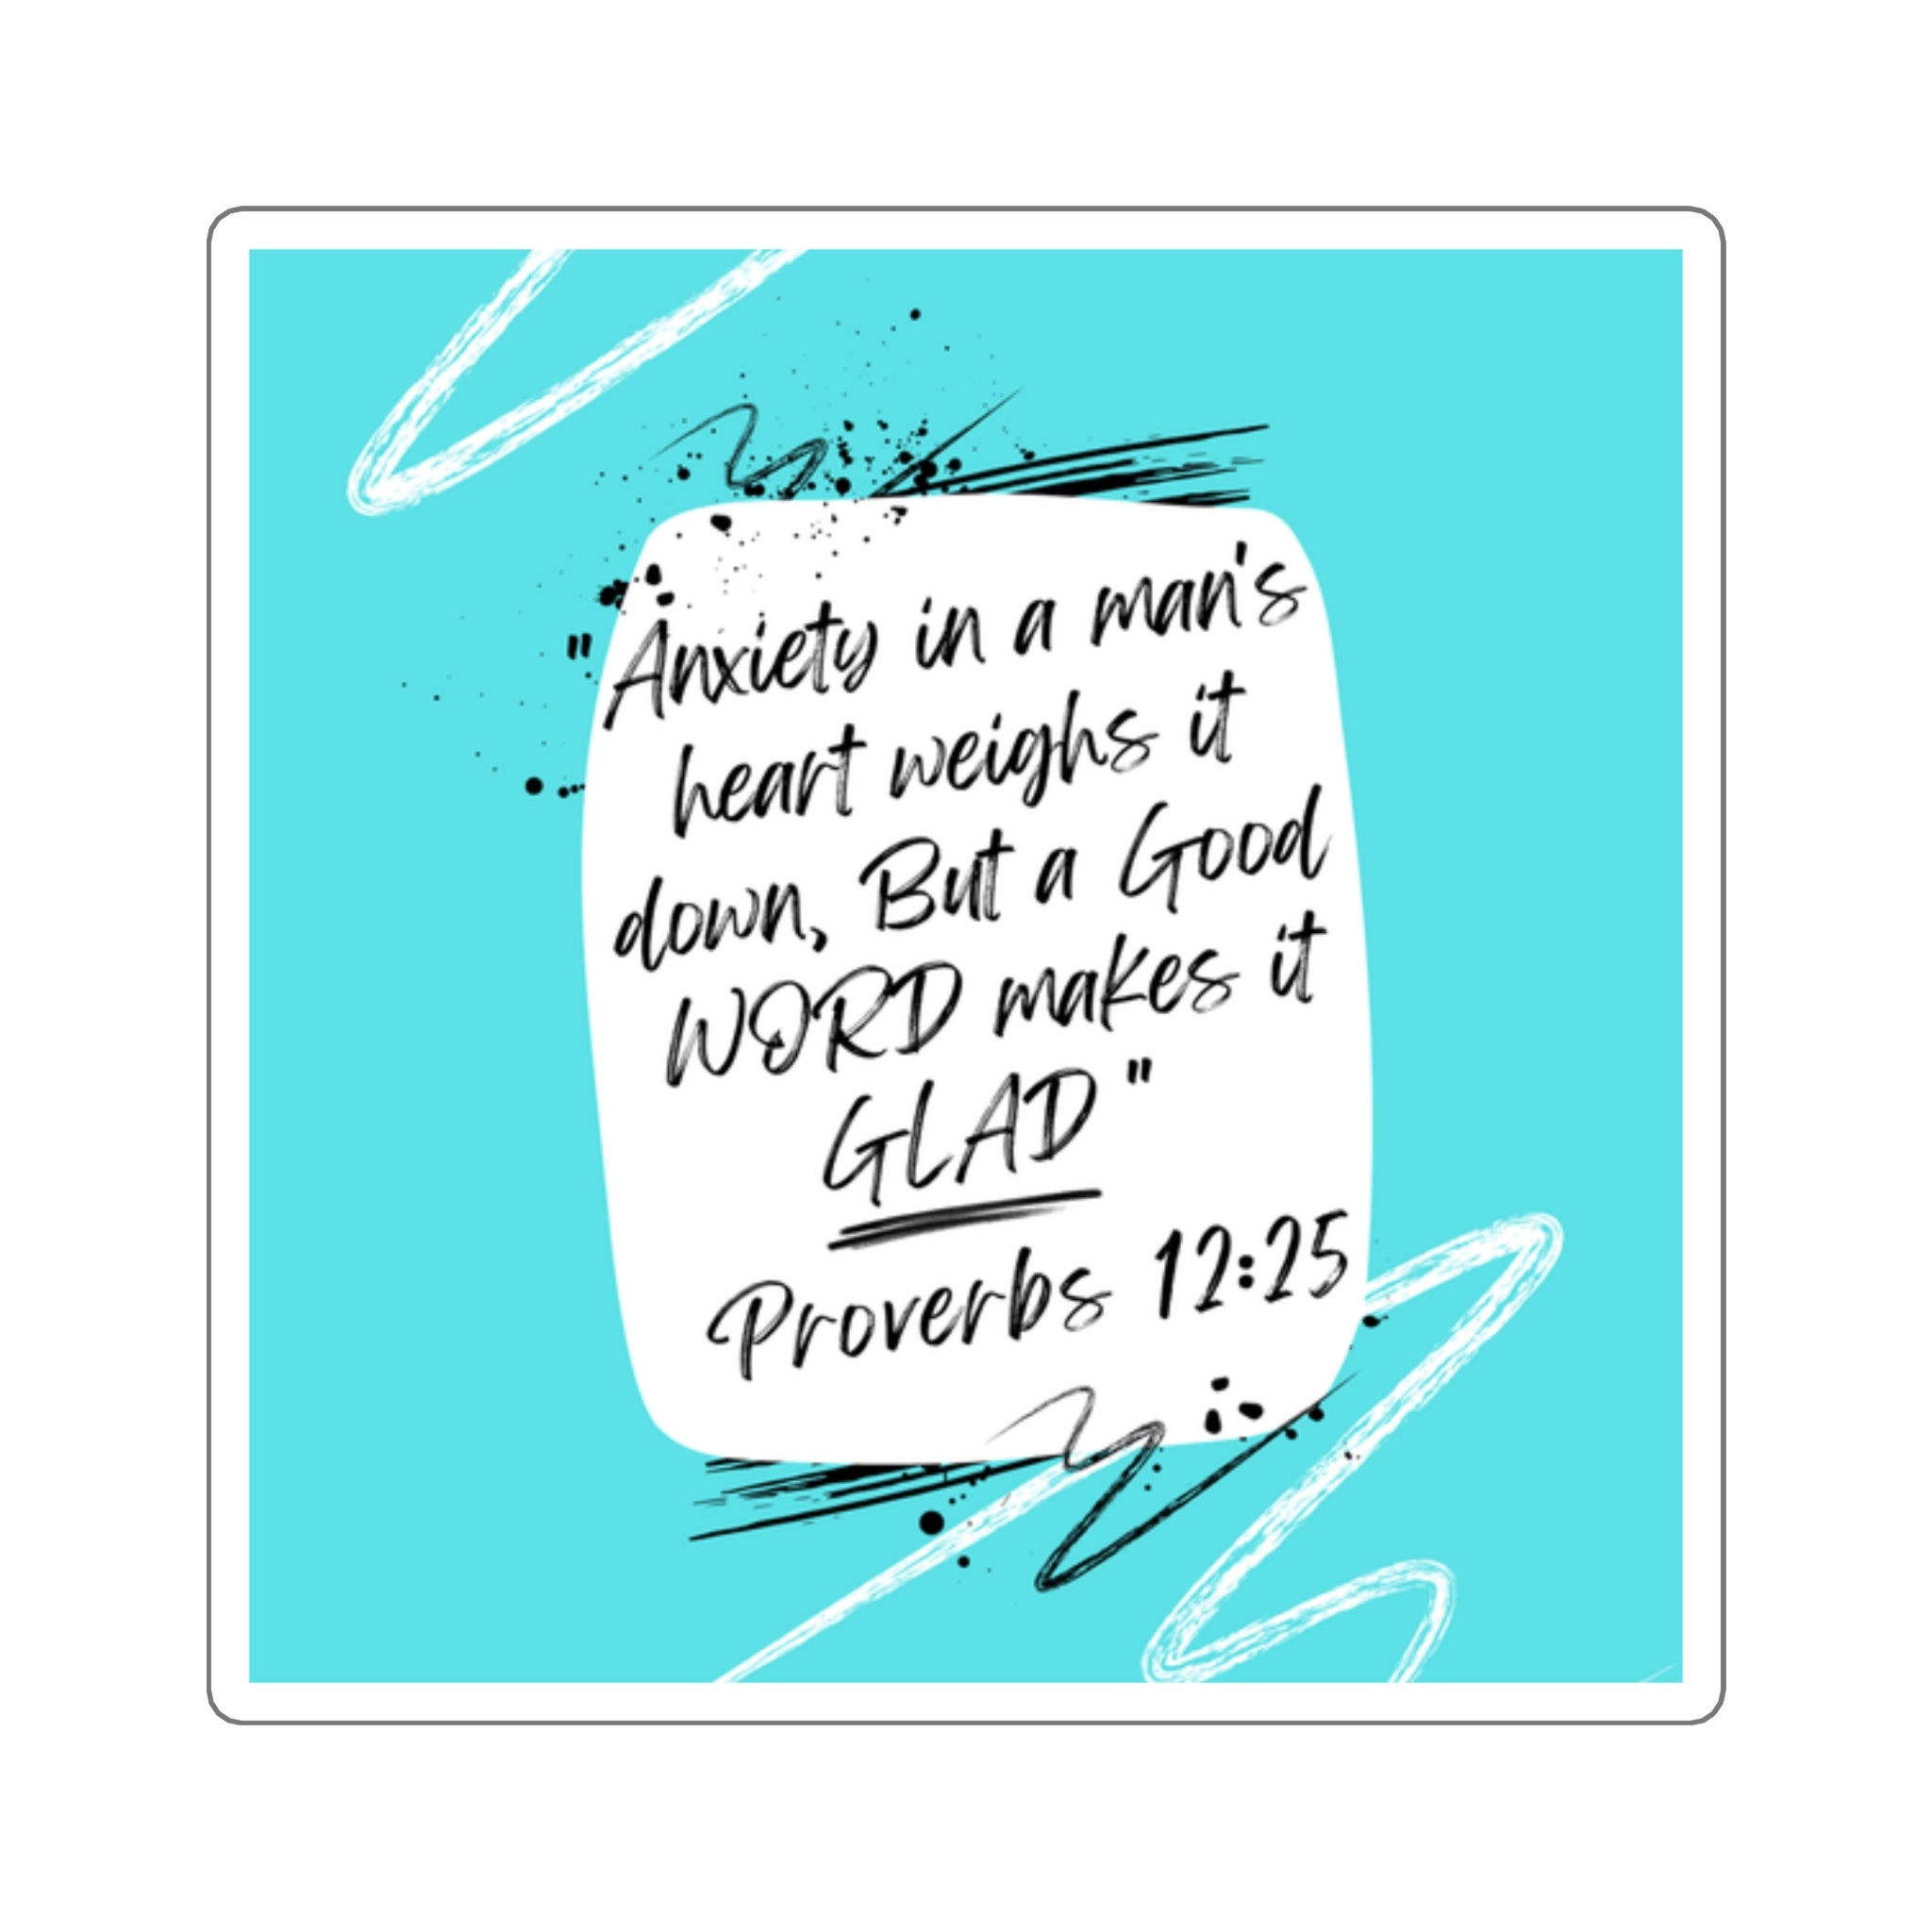 "Anxiety in a man's
heart weighs it
down, But a Good
WORD makes it
GLAD"
Proverbs 12:25